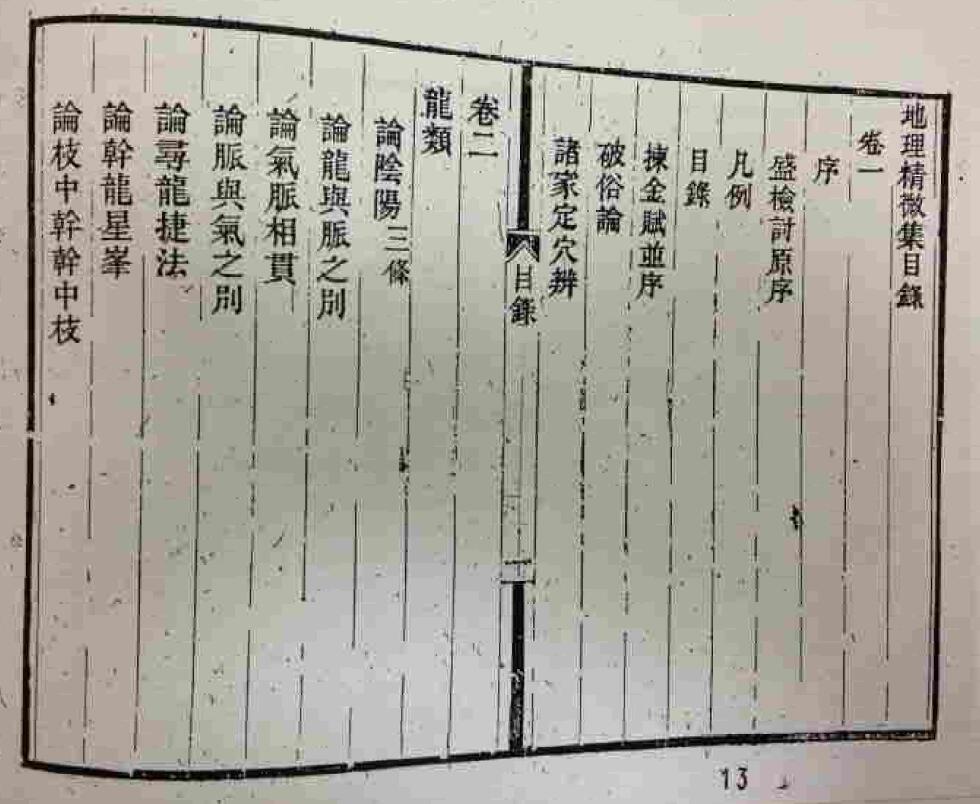 地理精微集目錄
卷一
序
盛檢討原序
凡例
目錄
揀金賦並序
破俗論
諸家定穴辨
目錄
卷二
龍類
論陰陽三條
論龍與脈之別
論氣脈相貫
論脈與氣之別
論尋龍捷法
論幹龍星峯
論枝中幹幹中枝
13